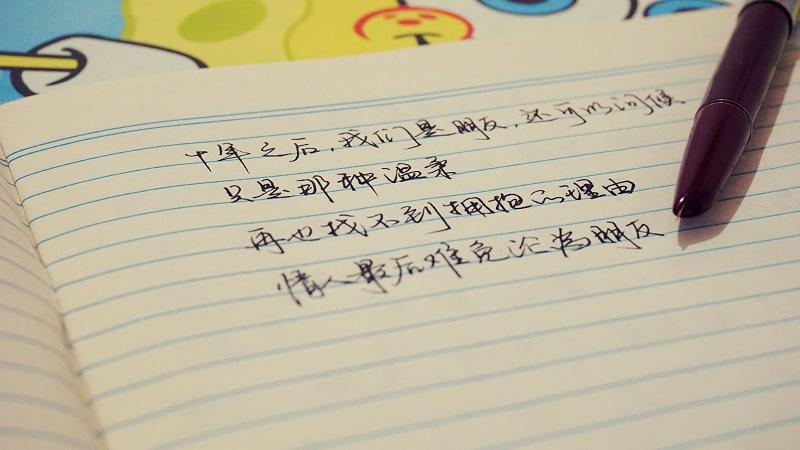 十年之后，我们是朋友，还可以问候
只是那种温柔
再也找不到拥抱的理由
情人最后难免沦为朋友